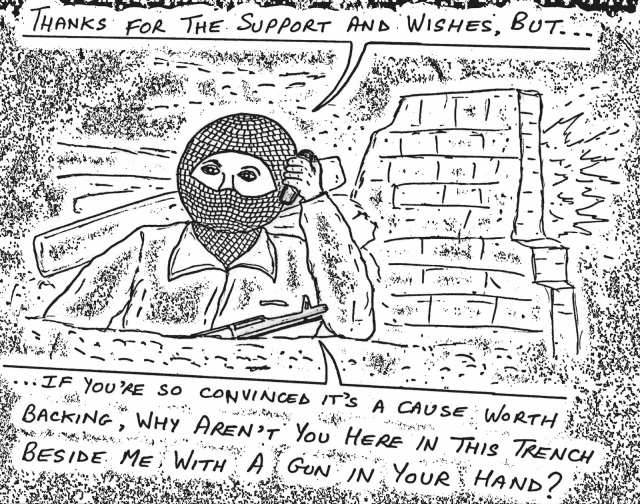 THANKS FOR THE SUPPORT AND WISHES, BUT...
...IF YOU'RE SO CONVINCED IT'S A CAUSE WORTH
BACKING, WHY AREN'T YOU HERE IN THIS TRENCH
BESIDE ME WITH A GUN IN YOUR HAND?